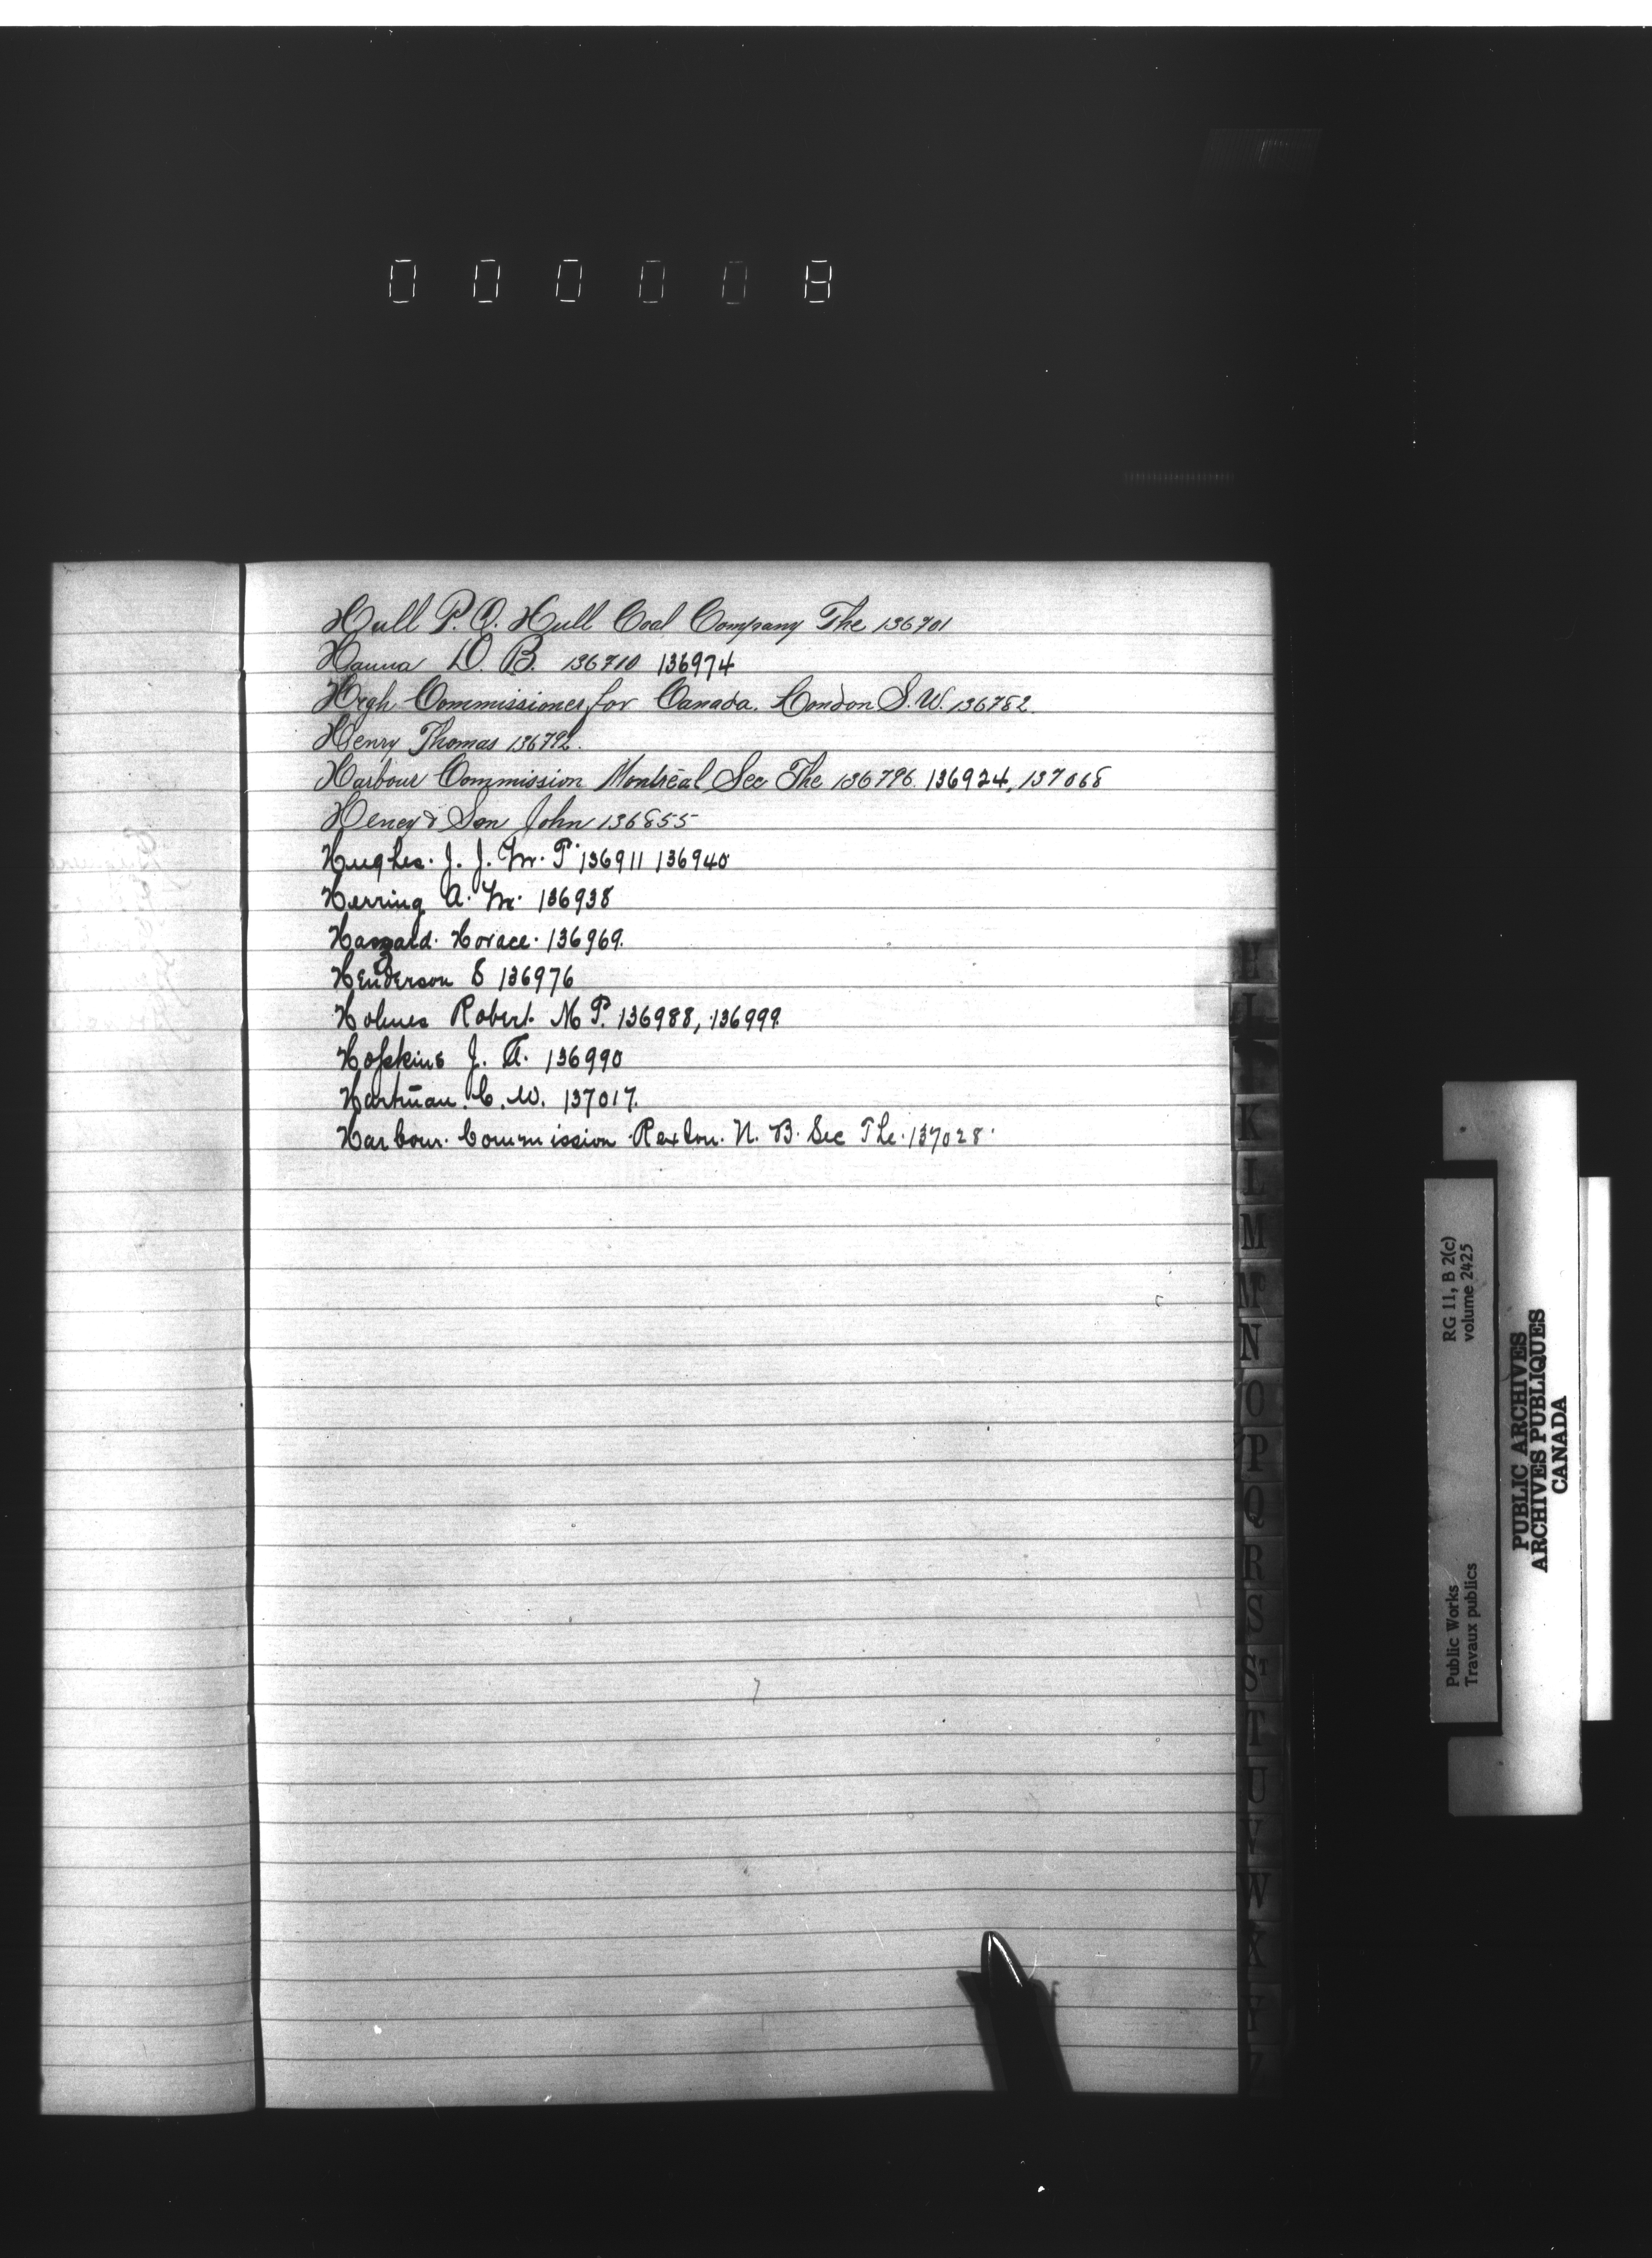 000008
Hull P.Q. Hull Coal Company The 136701
Hanna D. B. 136710 136974
High Commissioner for Canada. London S.W. 136782
Henry Thomas 136792.
Harbour Commission Montréal Sec The 136796. 136924, 137068
Heney & Son John 136855
Hughes. J. J. M. P. 136911 136940
Herring A. M. 136938
Haszard. Horace. 136969.
Henderson S 136976
Holmes Robert. M P. 136988, 136999
Hopkins J. A. 136990
Hartman. C. W. 137017.
Harbour. Commission Rexton. N. B. Sec The. 137028.
H
I
K
L
M
Mc
N
O
P
Q
R
S
St
T
U
V
W
X
Y
RG 11, B 2(c)
volume 2425
Public Works
Travaux publics
PUBLIC ARCHIVES
ARCHIVES PUBLIQUES
CANADA